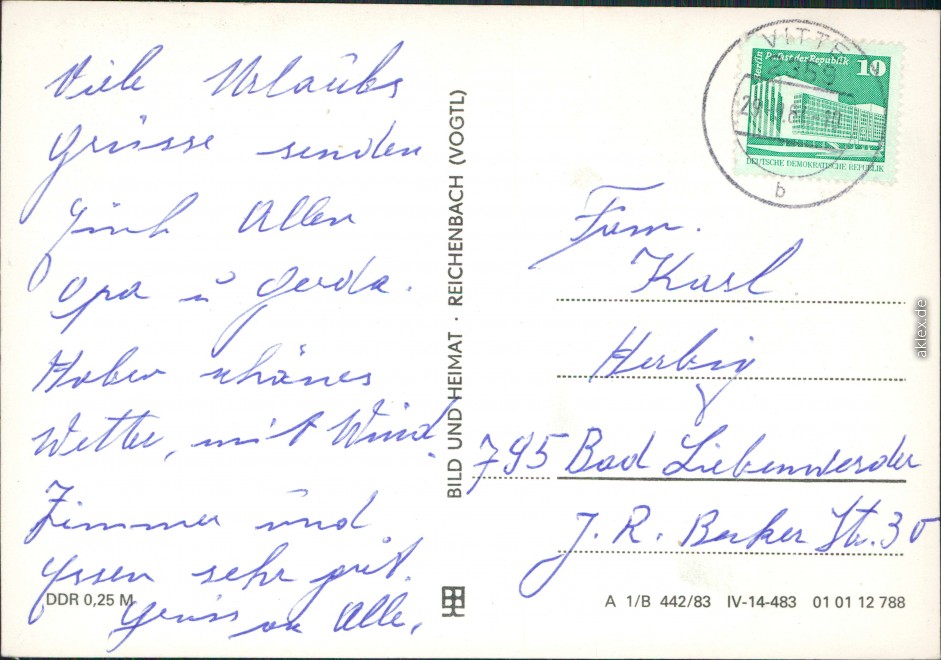 Viele Urlaubs
Grüsse senden
Euch Allen
Opa u Gerda.
Haben schönes
Wetter, mit Wind.
Zimmer und
Essen sehr gut.
Gruss an Alle.
DDR 0,25 M
BILD UND HEIMAT · REICHENBACH (VOGTL)
VITTE
2359
b
Berlin Palast der Republik 10
DEUTSCHE DEMOKRATISCHE REPUBLIK
Fam.
Karl
Herbig
795 Bad Liebenwerda
J. R. Becker Str. 30
A 1/B 442/83 IV-14-483 01 01 12 788
aklex.de